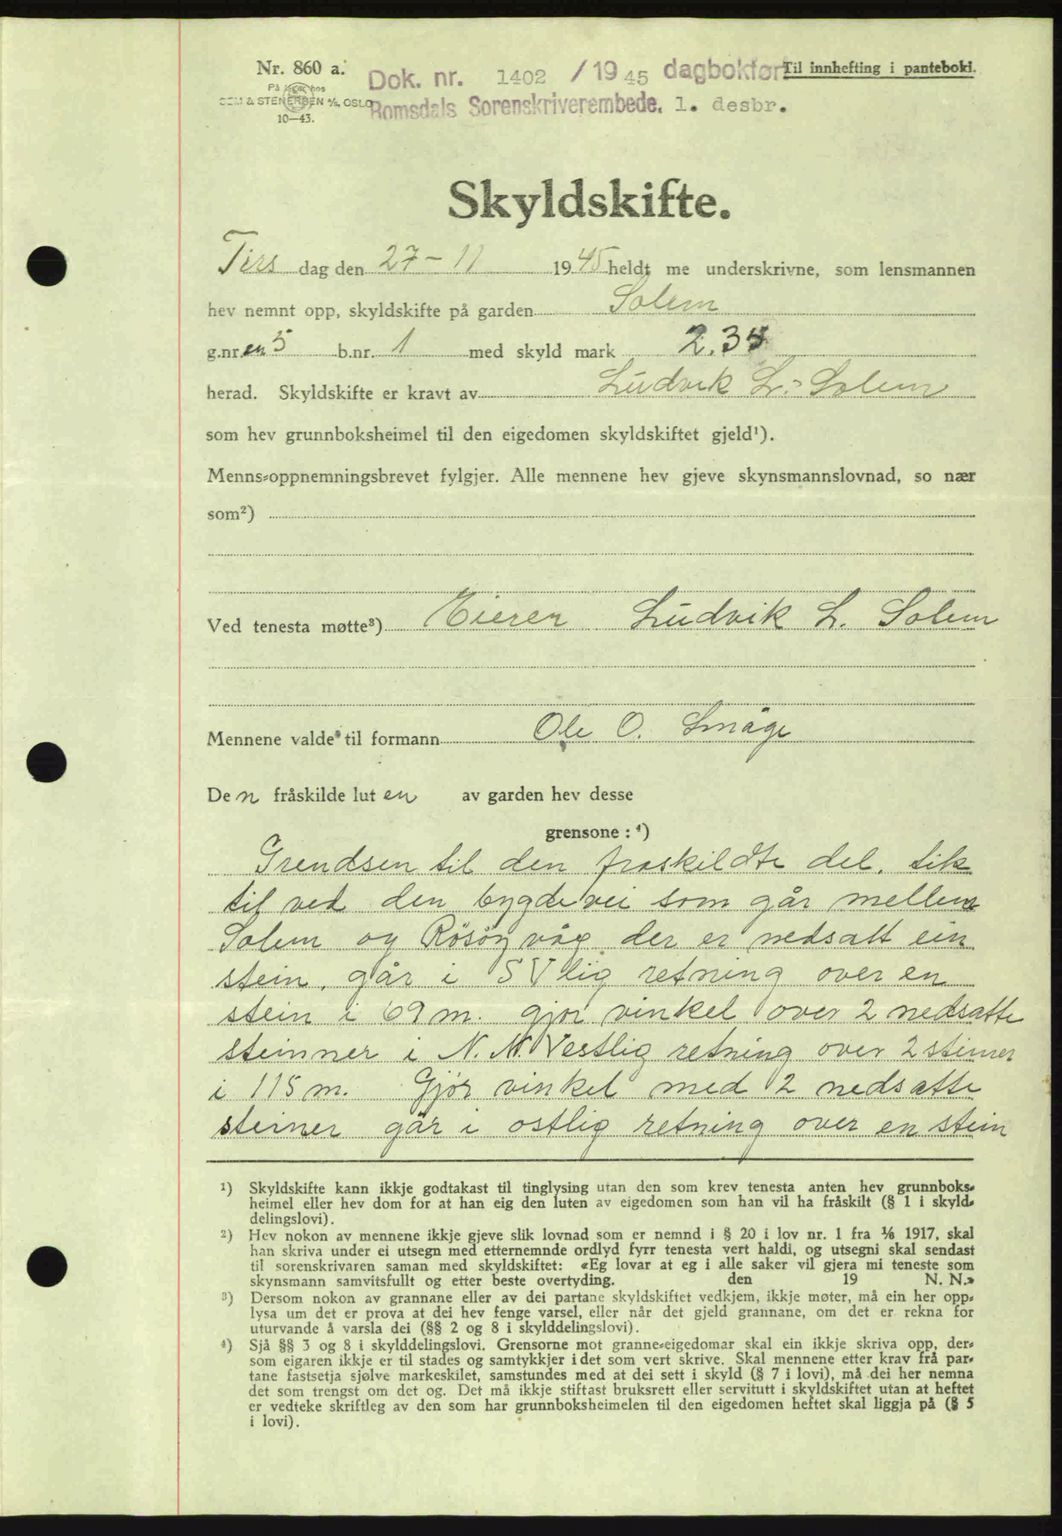 Nr. 860 a.
Dok. nr. 1402 / 1945 dagbokført
Til innhefting i pantebok.
På lager hos
SEM & STENERSEN A/S, OSLO
Romsdals Sorenskriverembede. 1. desbr.
10—43.
Skyldskifte.
Tirs dag den 27 - 11 1945 heldt me underskrivne, som lensmannen
hev nemnt opp, skyldskifte på garden Solem
g.nr. en 5 b.nr. 1 med skyld mark 2.35
herad. Skyldskifte er kravt av Ludvik L. Solem
som hev grunnboksheimel til den eigedomen skyldskiftet gjeld¹).
Menns-oppnemningsbrevet fylgjer. Alle mennene hev gjeve skynsmannslovnad, so nær
som²)
Ved tenesta møtte³) Eieren Ludvik L. Solem
Mennene valde til formann Ole O. Småge
De n fråskilde lut en av garden hev desse
grensone : ⁴)
Grendsen til den fraskildte del, tik
til ved den bygdevei som går mellem
Solem og Rösög våg der er nedsatt ein
stein, går i SV lig retning over en
stein i 69 m. gjör vinkel over 2 nedsatte
steinner i N. N. Vestlig retning over 2 steiner
i 115 m. Gjör vinkel med 2 nedsatte
steiner går i ostlig retning over en stein
¹) Skyldskifte kann ikkje godtakast til tinglysing utan den som krev tenesta anten hev grunnboks-
heimel eller hev dom for at han eig den luten av eigedomen som han vil ha fråskilt (§ 1 i skyld-
delingslovi).
²) Hev nokon av mennene ikkje gjeve slik lovnad som er nemnd i § 20 i lov nr. 1 fra 1/6 1917, skal
han skriva under ei utsegn med etternemnde ordlyd fyrr tenesta vert haldi, og utsegni skal sendast
til sorenskrivaren saman med skyldskiftet: «Eg lovar at eg i alle saker vil gjera mi teneste som
skynsmann samvitsfullt og etter beste overtyding. den 19 N. N.»
³) Dersom nokon av grannane eller av dei partane skyldskiftet vedkjem, ikkje møter, må ein her opp-
lysa um det er prova at dei hev fenge varsel, eller når det gjeld grannane, om det er rekna for
uturvande å varsla dei (§§ 2 og 8 i skylddelingslovi).
⁴) Sjå §§ 3 og 8 i skylddelingslovi. Grensorne mot granne-eigedomar skal ein ikkje skriva opp, der-
som eigaren ikkje er til stades og samtykkjer i det som vert skrive. Skal mennene etter krav frå par-
tane fastsetja sjølve markeskilet, samstundes med at dei sett i skyld (§ 7 i lovi), må dei her nemna
det som trengst om det og. Det må ikkje stiftast bruksrett eller servitutt i skyldskiftet utan at heftet
er vedteke skriftleg av den som har grunnboksheimelen til den eigedomen heftet skal liggja på (§ 5
i lovi).